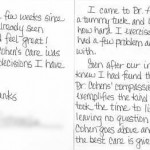 few weeks since
already seen
d feel great!
Cohen's care was
decisions I have
anks
I came to Dr.
a tummy tuck and l
how hard I exercise
had a few problem ar
with
Even after our in
knew I had found th
Dr. Cohens' compassi
exemplifies the kind
took, the time to li
leaving no question
Cohen goes above an
the best care is give